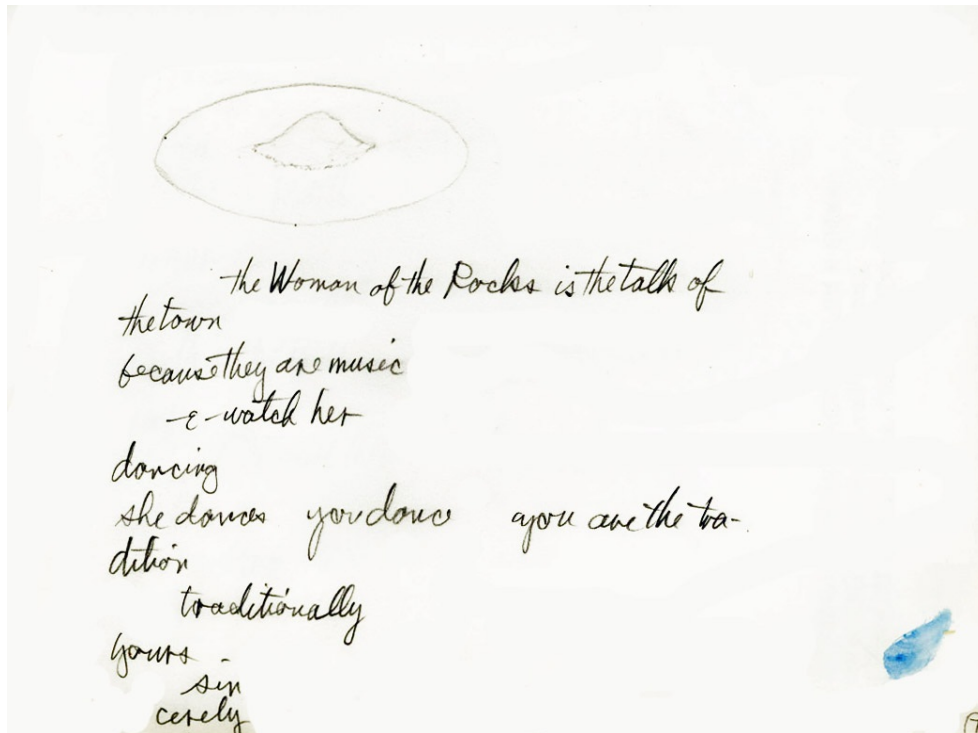 the Woman of the Rocks is the talk of
the town
because they are music
-ε-watch her
dancing
she dances you dance you are the tra-
dition
traditionally
yours
sin
cerely